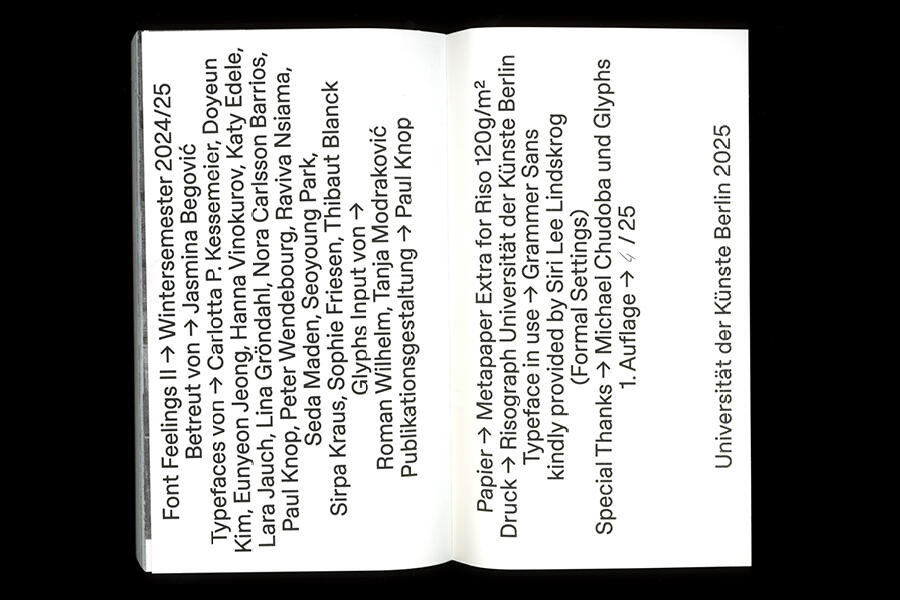 Font Feelings II → Wintersemester 2024/25
Betreut von → Jasmina Begović
Typefaces von → Carlotta P. Kessemeier, Doyeun
Kim, Eunyeon Jeong, Hanna Vinokurov, Katy Edele,
Lara Jauch, Lina Gröndahl, Nora Carlsson Barrios,
Paul Knop, Peter Wendebourg, Raviva Nsiama,
Seda Maden, Seoyoung Park,
Sirpa Kraus, Sophie Friesen, Thibaut Blanck
Glyphs Input von →
Roman Wilhelm, Tanja Modraković
Publikationsgestaltung → Paul Knop
Papier → Metapaper Extra for Riso 120g/m²
Druck → Risograph Universität der Künste Berlin
Typeface in use → Grammer Sans
kindly provided by Siri Lee Lindskrog
(Formal Settings)
Special Thanks → Michael Chudoba und Glyphs
1. Auflage → 4 / 25
Universität der Künste Berlin 2025